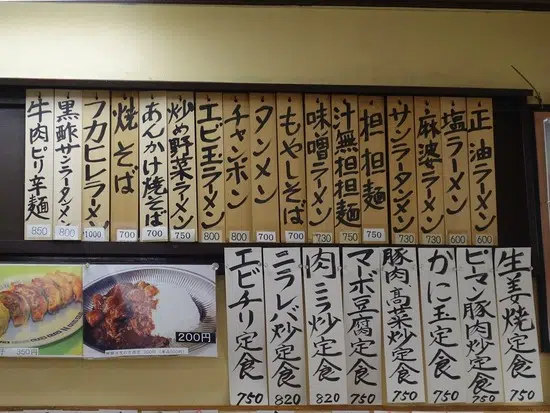 正油ラーメン 600
塩ラーメン 600
麻婆ラーメン 730
サンラータンメン 730
担担麺 750
汁無担担麺 750
味噌ラーメン 730
もやしそば 700
タンメン 700
チャンポン 800
エビ玉ラーメン 800
炒め野菜ラーメン 750
あんかけ焼そば 700
焼そば 700
フカヒレラーメン 1000
黒酢サンラータンメン 800
牛肉ピリ辛麺 850
生姜焼定食 750
ピーマン豚肉炒定食 750
かに玉定食 750
豚肉、高菜炒定食 750
マーボ豆腐定食 750
肉ニラ炒定食 820
ニラレバ炒定食 820
エビチリ定食 750
350円
200円